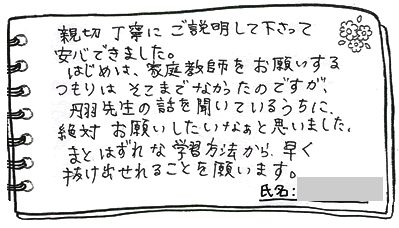 親切 丁寧に ご説明して下さって
安心できました。
はじめは、家庭教師を お願いする
つもりは そこまで なかったのですが、
丹羽先生の 話を聞いているうちに、
絶対 お願いしたいなぁと思いました。
まとはずれな 学習方法から、早く
抜け出せれることを 願います。
氏名: